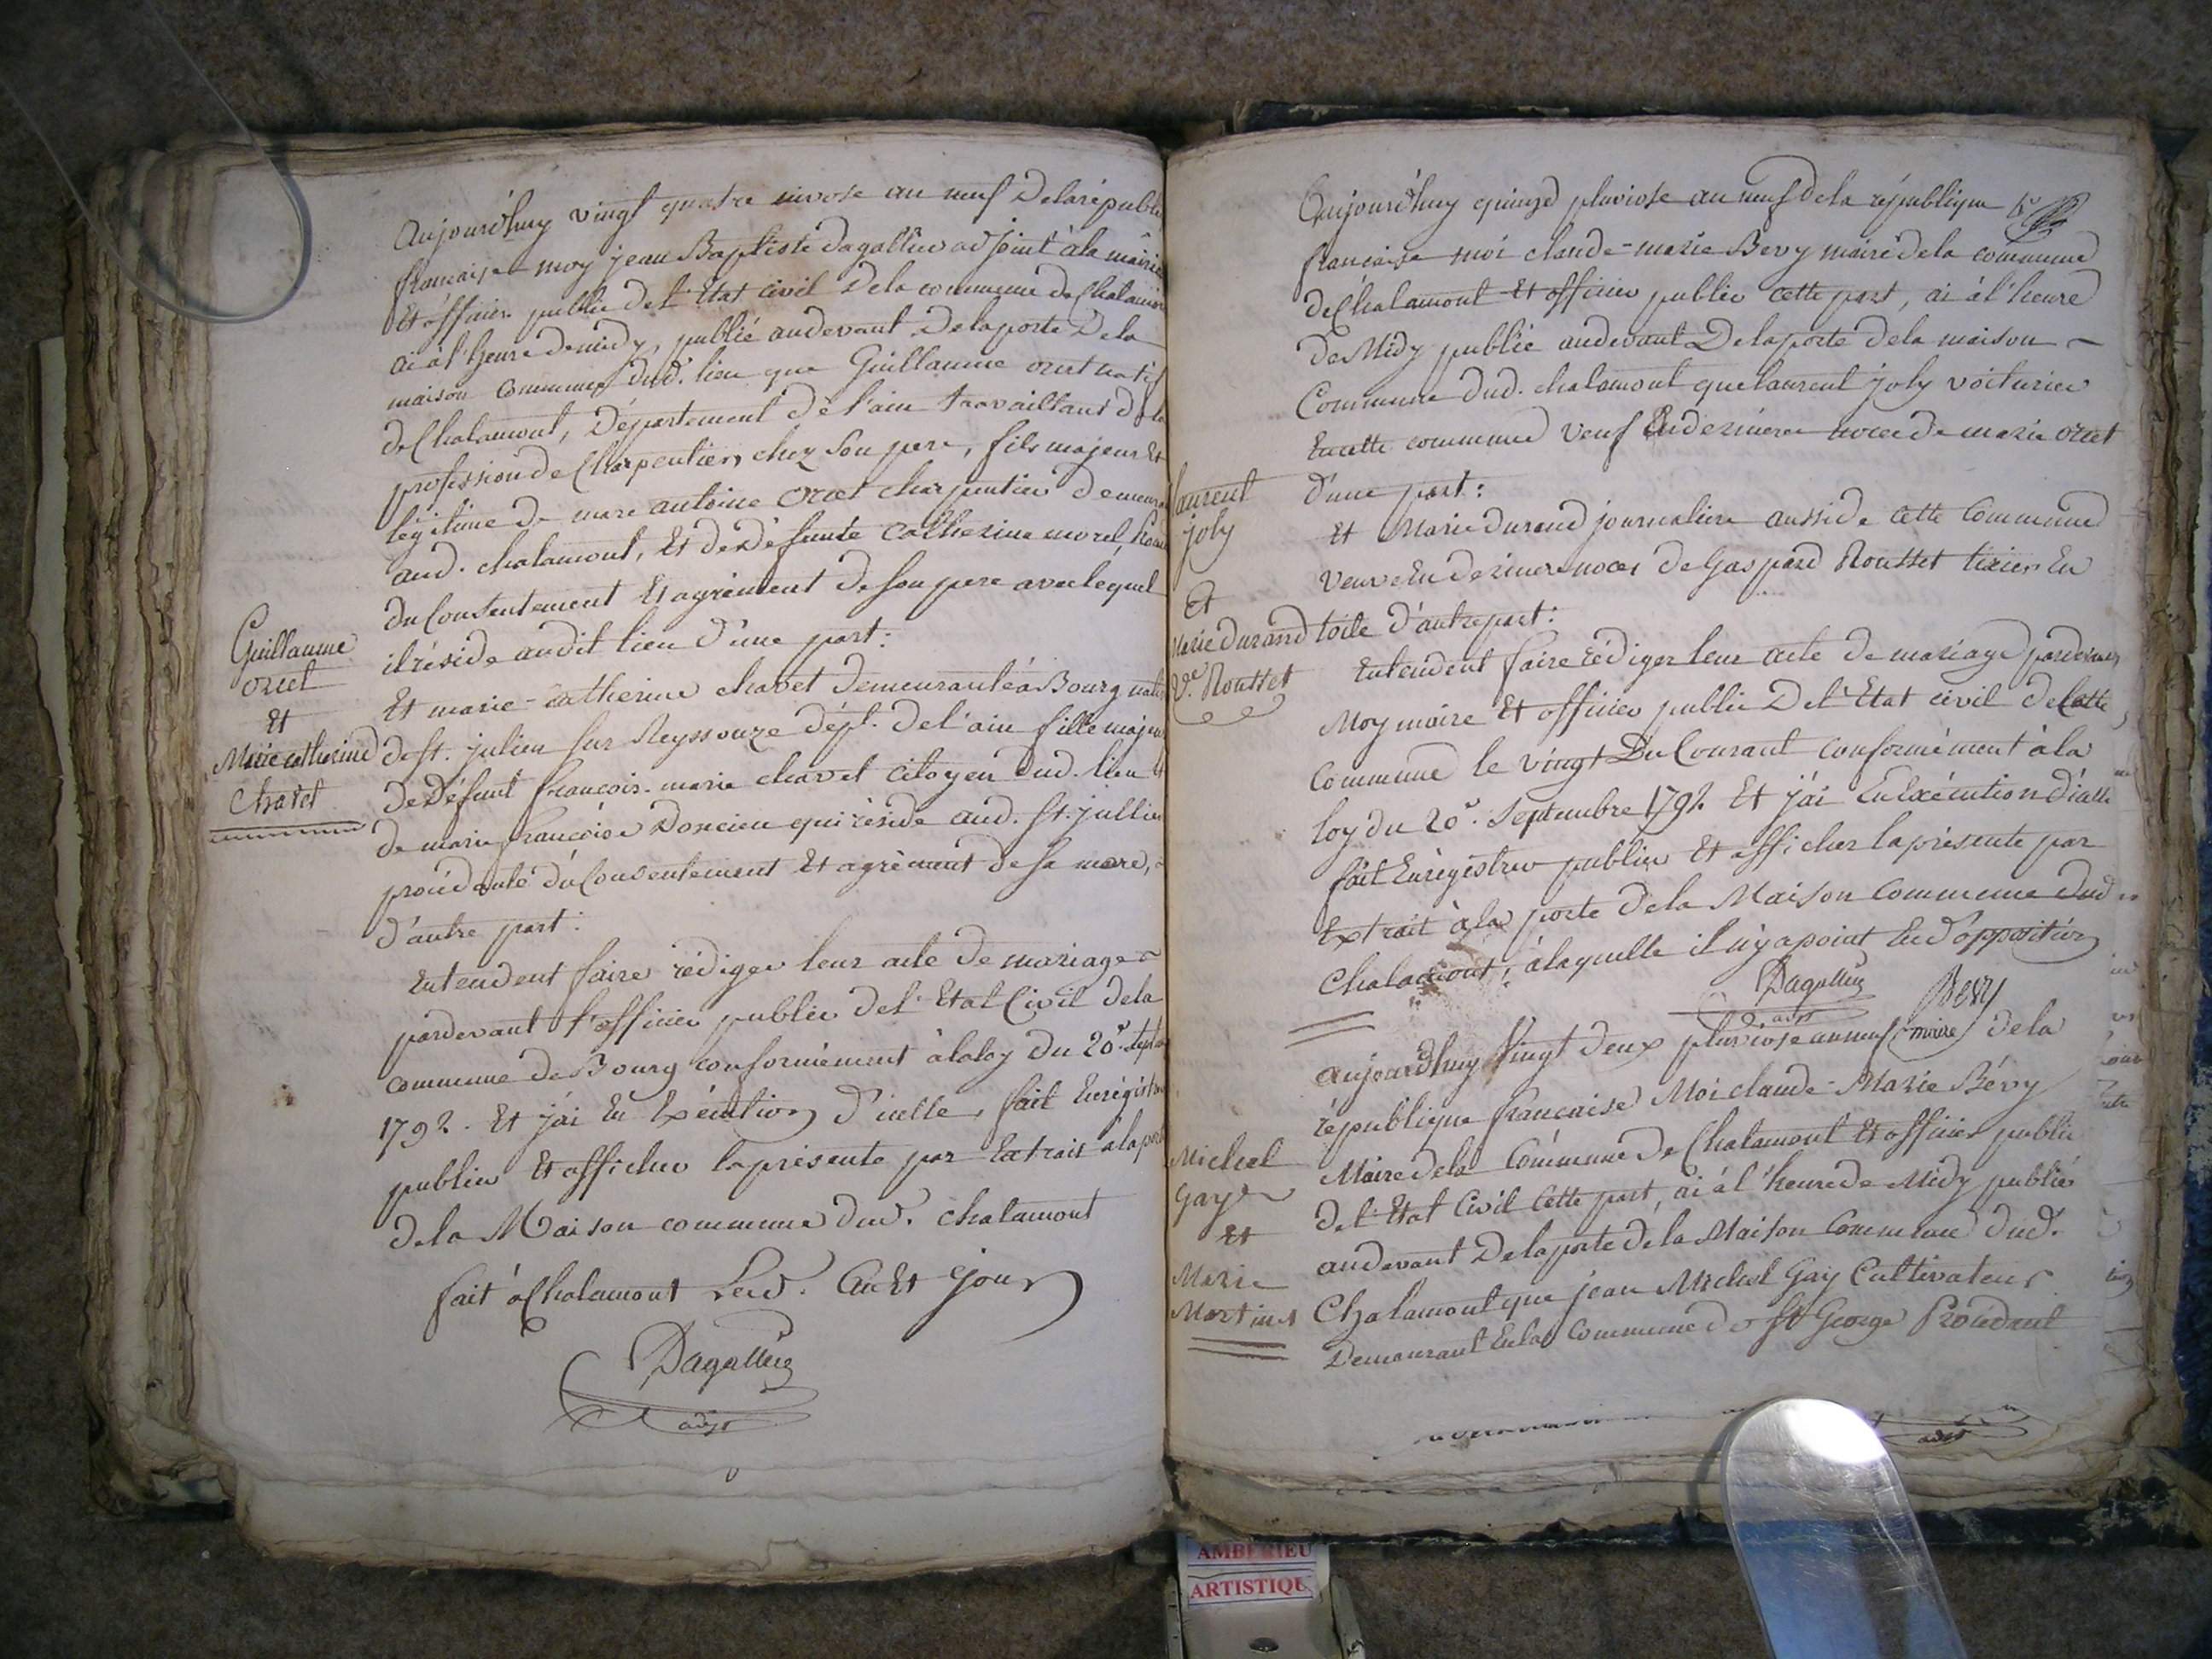 Aujourdhuy vingt quatre nivose an neuf De la républi
francaise moy jean Baptiste Dagallier adjoint à la mairie
Et officier public de l'Etat civil De la commune de Chalamon
ai à l'heure de midy, publié audevant De la porte De la
maison commune dud. lieu que Guillaume orcet natif
de Chalamont, Département de l'ain travaillant de la
profession de Charpentier chez son pere, fils majeur Et
légitime de marc antoine Orcet charpentier demeura
aud. chalamont, Et de défunte Catherine morel,
du Consentement Et agrément de son pere avec lequel
il réside audit lieu d'une part:
Guillaume
orcet
Et
Marie catherine
Chavet
Et marie-catherine chavet demeurante à Bourg nati
de st. julien sur Reyssouze dépt. de l'ain fille majeu
de Défunt francois-marie chavet citoyen dud. lieu et
de marie francoise Doncieu qui réside aud. st. jullien
procédante du Consentement Et agrément de sa mere,
d'autre part:
Entendent faire rédiger leur acte de mariage
pardevant l'officier public de l'Etat Civil de la
commune de Bourg conformément à la loy du 20e. sept
1792. Et j'ai En Exécution d'icelle, fait Enregistre
publier Et afficher la présente par Extrait à la port
de la Maison commune dud. chalamont
fait à Chalamont Led. an Et jour
Dagallier
adjt
Aujourdhuy quinze pluviose an neuf de la république
francaise moi claude-marie Bevy maire de la commune
de Chalamont Et officier public cette part, ai à l'heure
de Midy publié audevant De la porte de la maison
Commune dud. chalamont que laurent joly voiturier
En cette commune veuf En derniere noces de marie orcet
d'une part:
laurent
joly
Et
Marie durand
Ve. Rousset
Et Marie durand journaliere aussi de cette Commune
veuve En derniere noces de Gaspard Rousset tixier En
toile d'autre part:
Entendent faire rédiger leur acte de mariage pardevant
Moy maire Et officier public De l'Etat civil de Cette
Commune le vingt Du Courant conformément à la
loy du 20e. septembre 1792 Et j'ai En Exécution d'icelle
fait Enregistrer publier Et afficher la présente par
Extrait à la porte de la Maison commune dud
Chalamont; à laquelle il n'y a point Eu d'opposition
Dagallier
adjt
Bevy
maire
aujourdhuy vingt deux pluviose an neuf de la
république francaise Moi claude-Marie Bévy
Maire de la Commune de Chalamont Et officier public
de l'Etat Civil Cette part, ai à l'heure de Midy publié
audevant De la porte de la Maison Commune dud.
Chalamont que jean Michel Gay Cultivateur
Demeurant En la Commune de st George Procédant
Michel
Gay
Et
Marie
Martin
adjt
AMBERIEU
ARTISTIQU